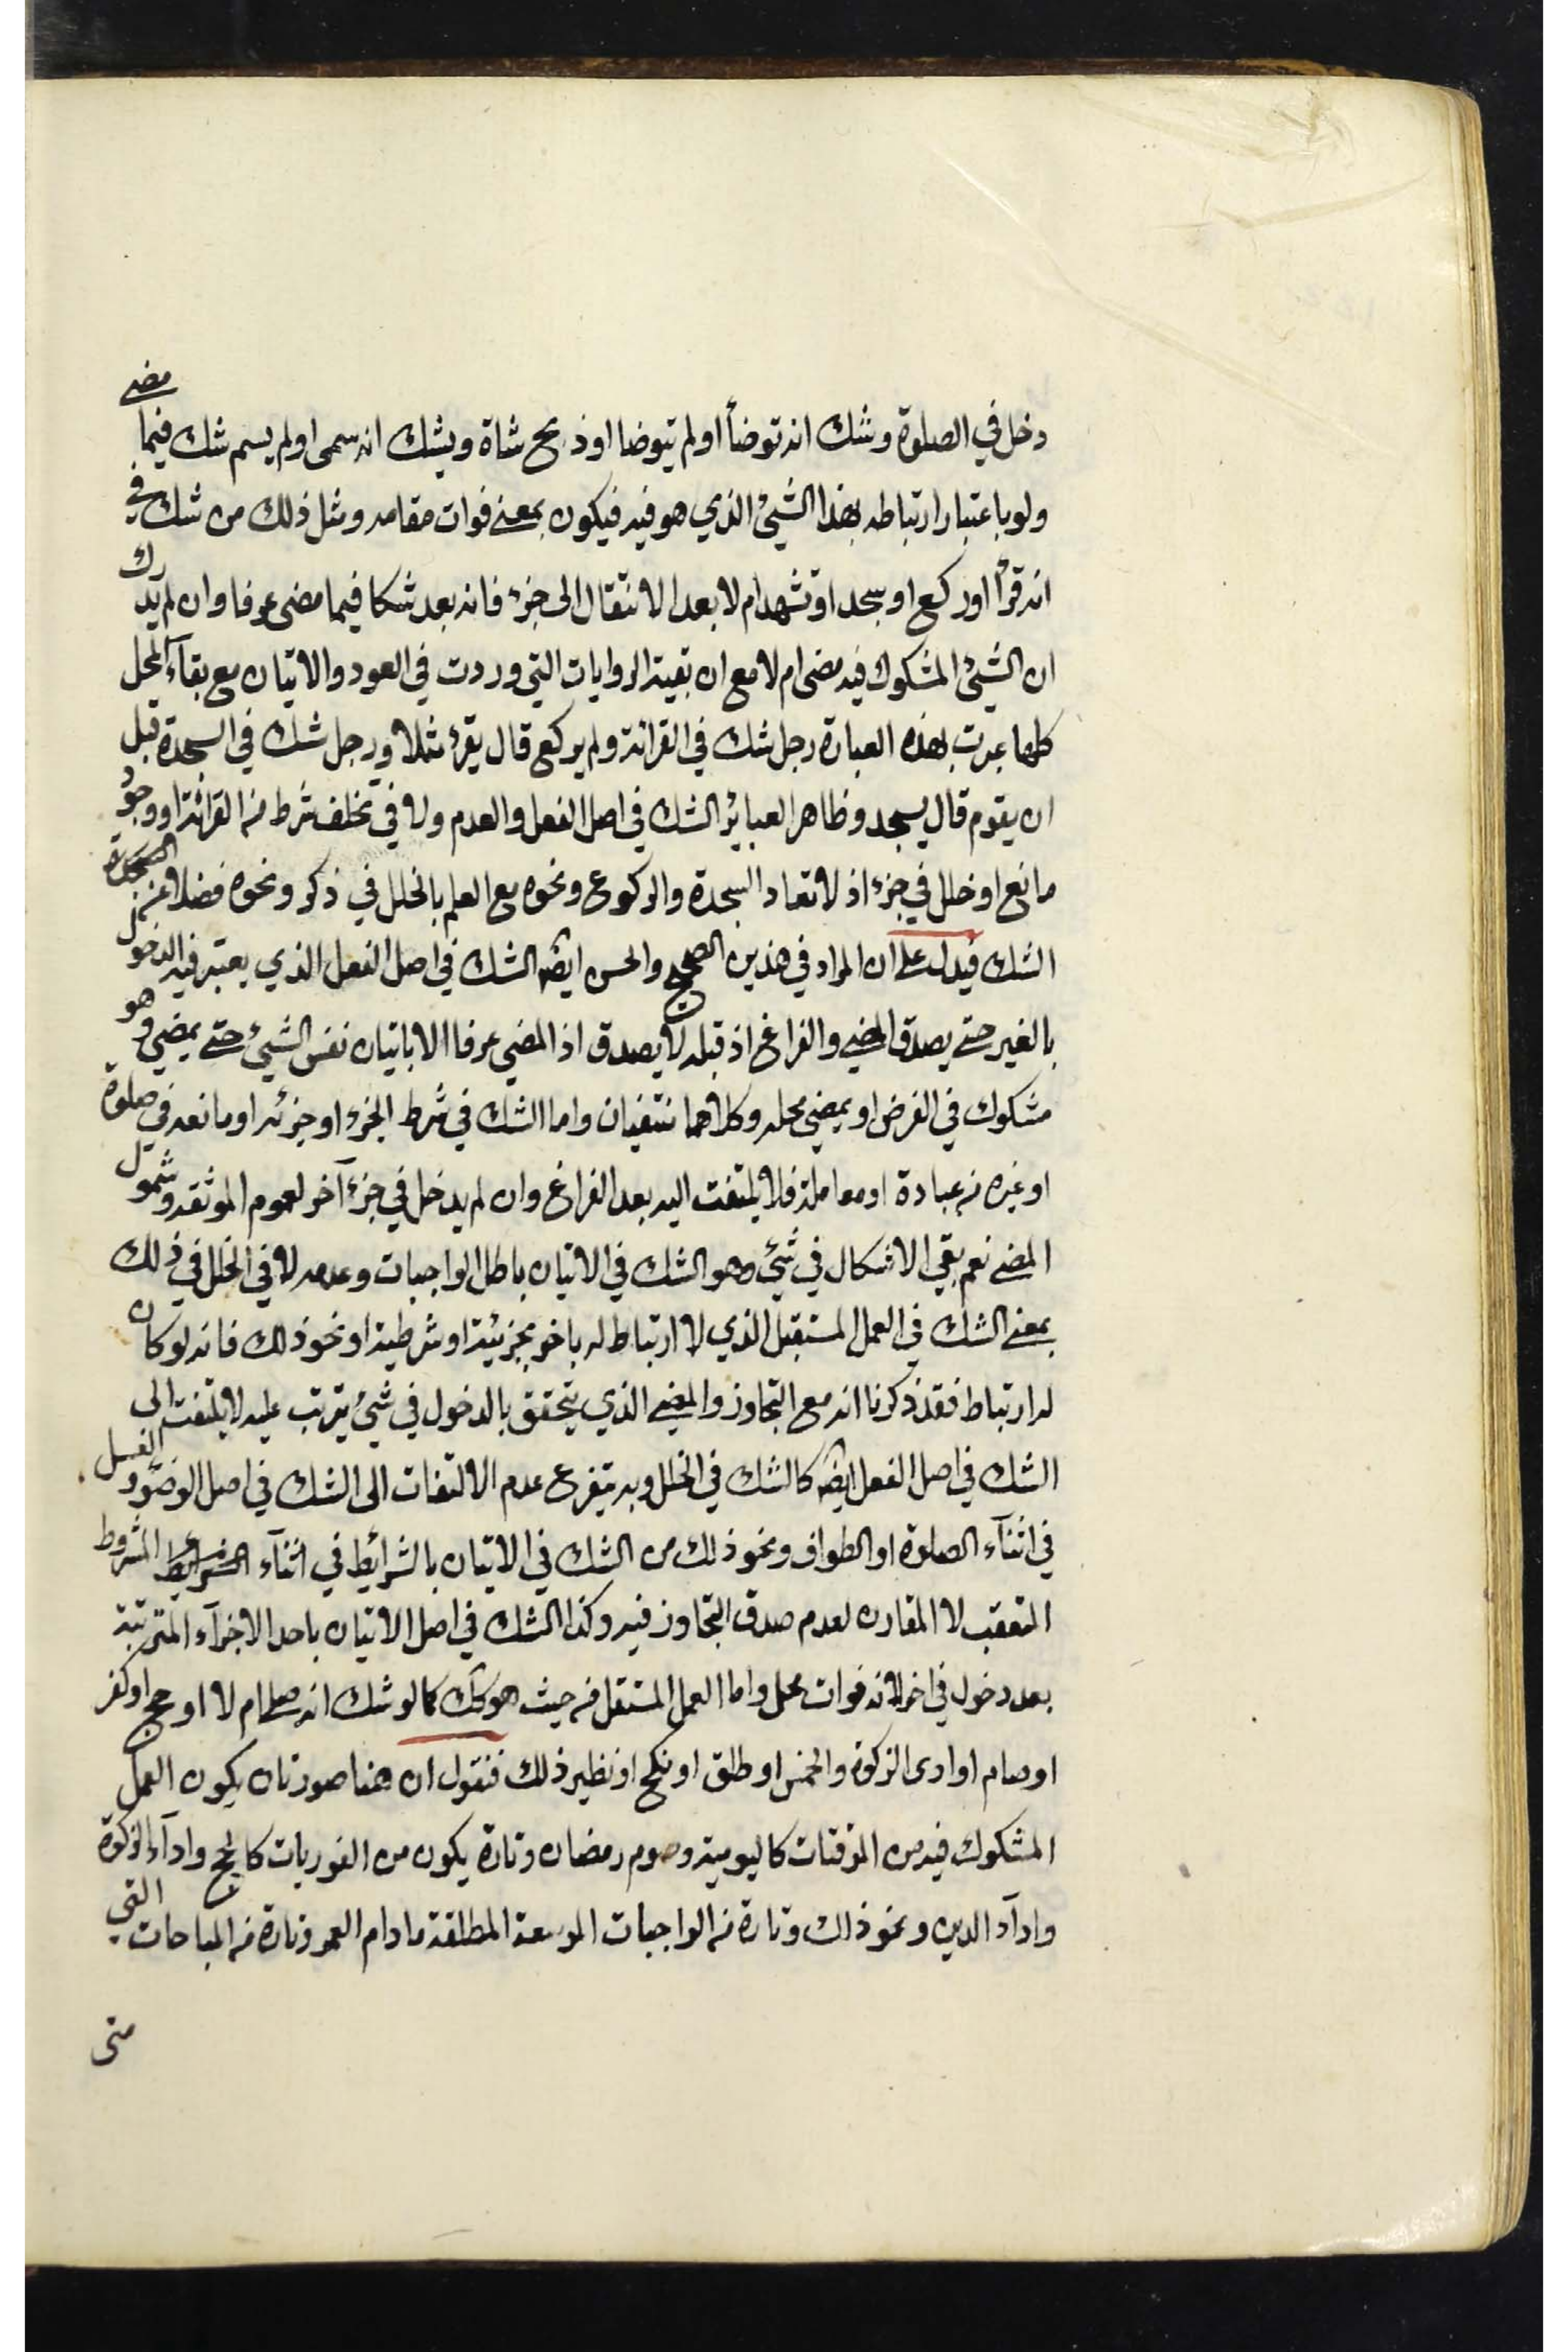 دخل في الصلوة وشك انه توضأ او لم يتوضا او ذبح شاة ويشك انه سمى او لم يسم شك فيما مضى
ولو باعتبار ارتباطه بهذا الشيئ الذي هو فيه فيكون بمعنى فوات مقامه ومثل ذلك من شك في
انه قرأ او ركع او سجد او تشهد ام لا بعد الانتقال الى جزء فانه يعد شكا فيما مضى عرفا وان لم يدرك
ان الشيئ المشكوك فيه مضى ام لا مع ان بقية الروايات التي وردت في العود والاتيان مع بقآء المحل
كلها عبرت بهذه العبارة رجل شك في القرائة ولم يركع قال يقرء مثلا ورجل شك في السجدة قبل
ان يقوم قال يسجد وظاهر العباير الشك في اصل الفعل والعدم ولا في تخلف شرط من القرائة او وجود
مانع او خلل في جزء اذ لا تعاد السجدة والركوع ونحوه مع العلم بالخلل في ذكر ونحوه فضلا عن الصحة
الشك فيدل على ان المراد في هذين الصحيح والحسن ايضا الشك في اصل الفعل الذي يعتبر فيه الدخول
بالغير حتى يصدق المضى والفراغ اذ قبله لا يصدق اذ المضي عرفا الا باتيان نفس الشيئ حتى يمضي وهو
مشكوك في الفرض او يمضي محله وكلاهما منتفيان واما الشك في شرط الجزء او جزئه او مانعه في صلوة
او غيره من عبادة او معاملة فلا يلتفت اليه بعد الفراغ وان لم يدخل في جزء آخر لعموم الموثقه وشمول
المضى نعم بقي الاشكال في شيئ وهو الشك في الاتيان باصل الواجبات وعدمه لا في الخلل في ذلك
بمعنى الشك في العمل المستقبل الذي لا ارتباط له باخر بجزئية او شرطية او نحو ذلك فانه لو كان
له ارتباط فقد ذكرنا انه مع التجاوز والمضى الذي يتحقق بالدخول في شيئ يترتب عليه لا يلتفت الى
الشك في اصل الفعل ايضا كالشك في الخلل وبه يتفرع عدم الالتفات الى الشك في اصل الوضوء والغسل
في اثنآء الصلوة او الطواف ونحو ذلك من الشك في الاتيان بالشرايط في اثنآء الشرايط المشروط
التعقب لا المقارن لعدم صدق التجاوز فيه وكذا الشك في اصل الاتيان باحد الاجزآء المترتبة
بعد دخول في اخر لانه فوات محل واما العمل المستقل من حيث هو كك كما لو شك انه صلى ام لا او حج او كفر
او صام او ادى الزكوة والخمس او طلق او نكح او نظير ذلك فنقول ان هنا صورتان يكون العمل
المشكوك فيه من الموقتات كاليومية وصوم رمضان وتارة يكون من الفوريات كالحج وادآء الزكوة
وادآء الدين ونحو ذلك وتارة من الواجبات الموسعة المطلقة ما دام العمر وتارة من المباحات التي
متى